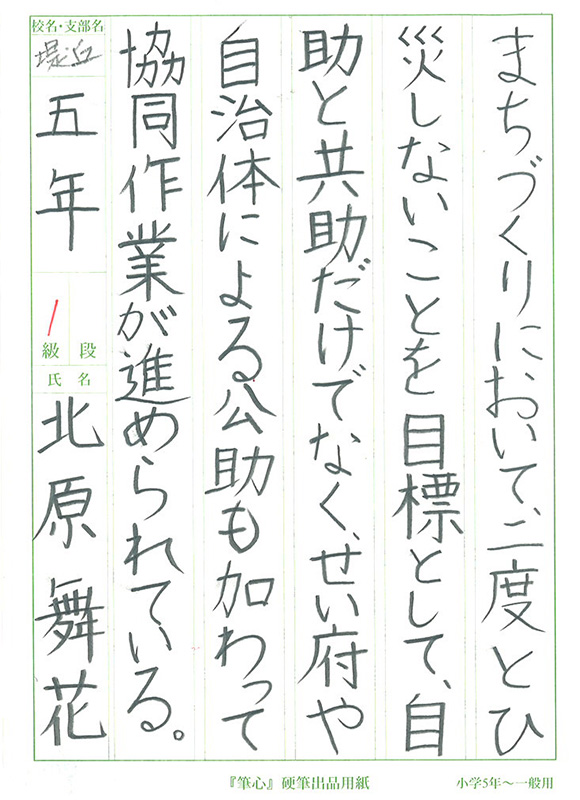 まちづくりにおいて、二度とひ
災しないことを目標として、自
助と共助だけでなく、せい府や
自治体による公助も加わって
協同作業が進められている。
校名・支部名
堤近
五年
1
級 段
氏 名
北原舞花
『筆心』硬筆出品用紙
小学5年〜一般用